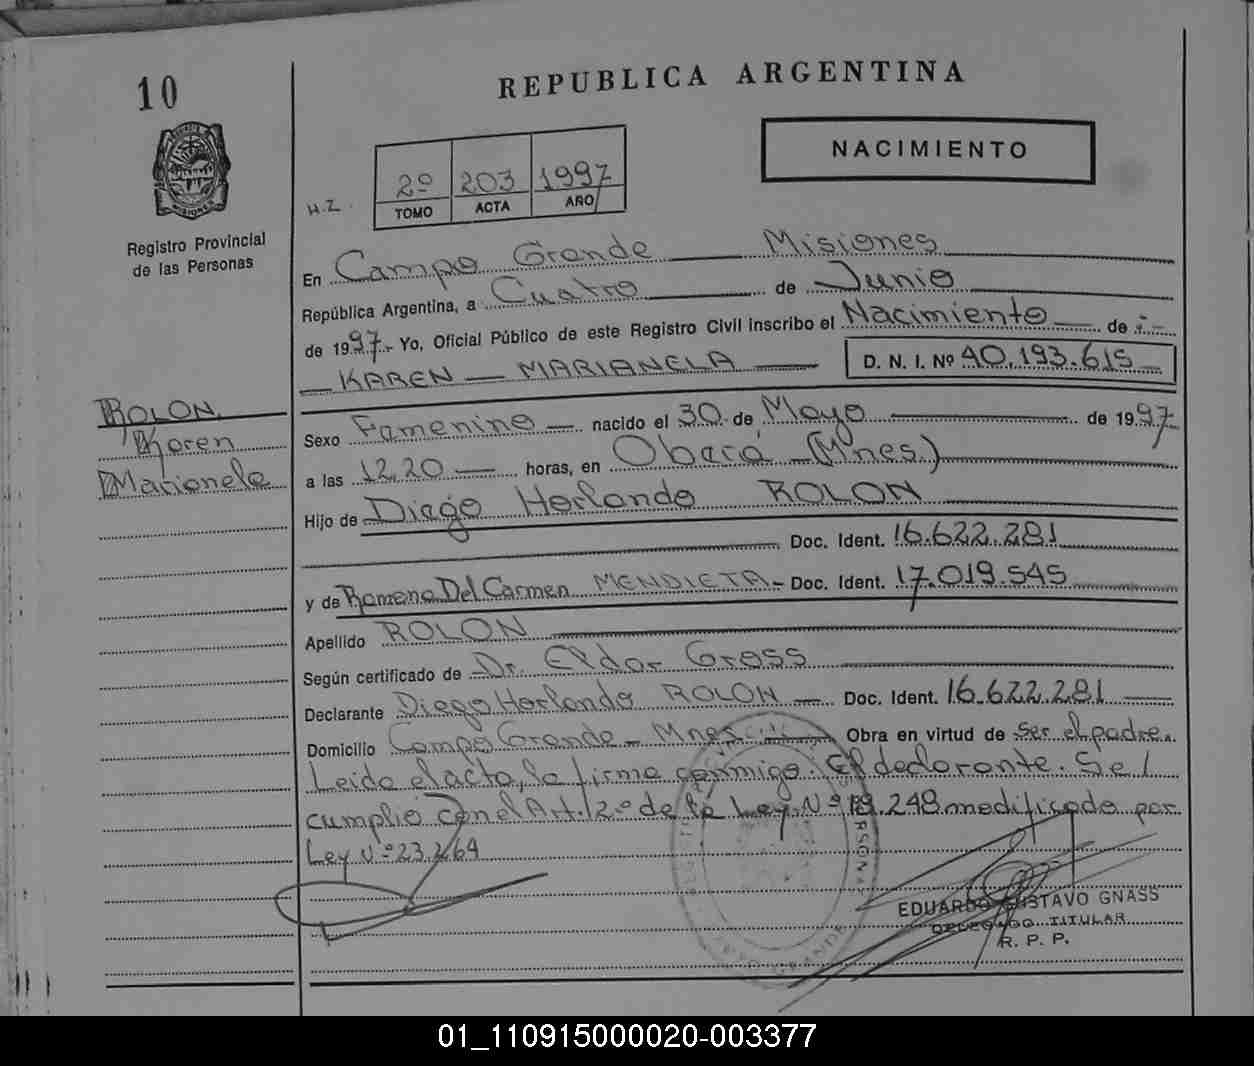 10
REPUBLICA ARGENTINA
NACIMIENTO
2º 203 1997
TOMO ACTA AÑO
H.Z.
Registro Provincial
de las Personas
En Campo Grande Misiones
República Argentina, a Cuatro de Junio
de 1997.- Yo, Oficial Público de este Registro Civil inscribo el Nacimiento de :-
KAREN MARIANELA D. N. I. Nº 40.193.615
ROLON
Karen
Marianela
Sexo Femenino nacido el 30 de Mayo de 1997
a las 12,20 horas, en Oberá (Mnes.)
Hijo de Diego Horlando ROLON
Doc. Ident. 16.622.281
y de Ramona Del Carmen MENDIETA - Doc. Ident. 17.019.545
Apellido ROLON
Según certificado de Dr. Eldor Gross
Declarante Diego Horlando ROLON Doc. Ident. 16.622.281
Domicilio Campo Grande - Mnes Obra en virtud de ser el padre.
Leido el acto, lo firma conmigo: El declarante. Se
cumplió con el Art. 12º de la Ley Nº 18.248 modificado por
Ley Nº 23.264
EDUARDO GUSTAVO GNASS
DELEGADO TITULAR
R. P. P.
01_110915000020-003377